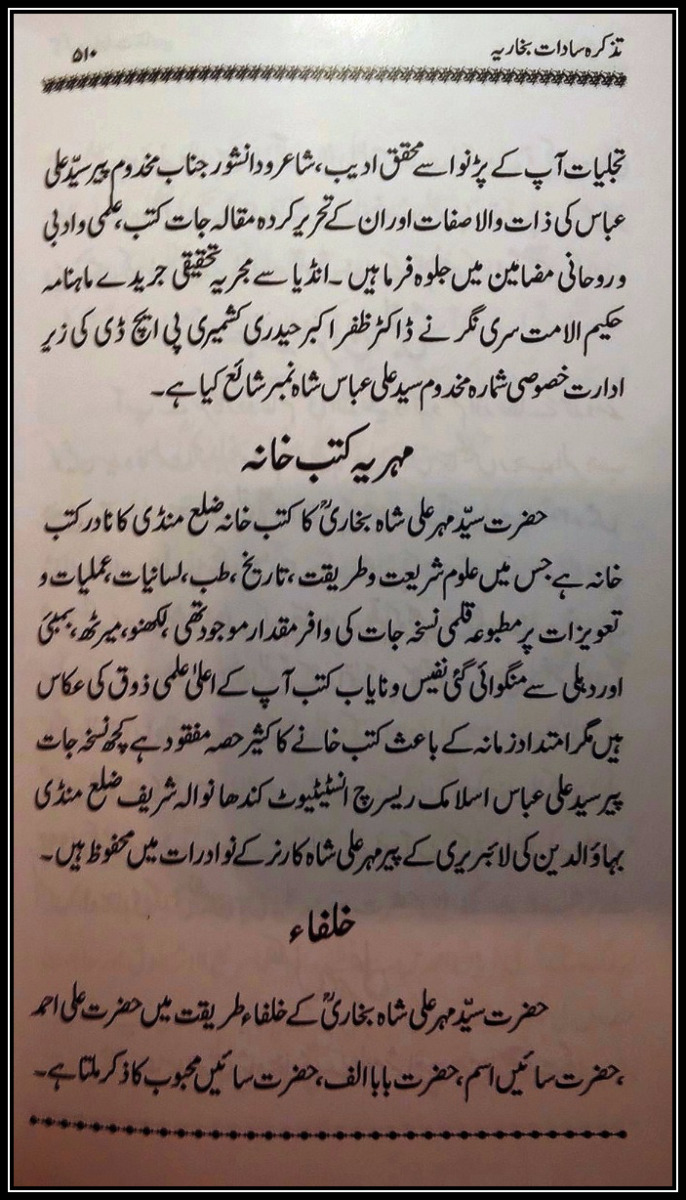 تذکرہ سادات بخاریہ
۵۱۰
تجلیات آپ کے پڑنواسے محقق ادیب، شاعر و دانشور جناب مخدوم پیر سیّد علی
عباس کی ذات والا صفات اور ان کے تحریر کردہ مقالہ جات کتب، علمی و ادبی
و روحانی مضامین میں جلوہ فرما ہیں۔ انڈیا سے مجریہ تحقیقی جریدے ماہنامہ
حکیم الامت سری نگر نے ڈاکٹر ظفر اکبر حیدری کشمیری پی ایچ ڈی کی زیر
ادارت خصوصی شمارہ مخدوم سید علی عباس شاہ نمبر شائع کیا ہے۔
مہریہ کتب خانہ
حضرت سیّد مہر علی شاہ بخاریؒ کا کتب خانہ ضلع منڈی کا نادر کتب
خانہ ہے جس میں علوم شریعت و طریقت، تاریخ، طب، لسانیات، عملیات و
تعویزات پر مطبوعہ قلمی نسخہ جات کی وافر مقدار موجود تھی، لکھنو، میرٹھ، بمبئی
اور دہلی سے منگوائی گئی نفیس و نایاب کتب آپ کے اعلیٰ علمی ذوق کی عکاس
ہیں مگر امتداد زمانہ کے باعث کتب خانے کا کثیر حصہ مفقود ہے کچھ نسخہ جات
پیر سید علی عباس اسلامک ریسرچ انسٹیٹیوٹ کندھانوالہ شریف ضلع منڈی
بہاؤالدین کی لائبریری کے پیر مہر علی شاہ کارنر کے نوادرات میں محفوظ ہیں۔
خلفاء
حضرت سیّد مہر علی شاہ بخاریؒ کے خلفاء طریقت میں حضرت علی احمد
، حضرت سائیں اسم، حضرت بابا الف، حضرت سائیں محبوب کا ذکر ملتا ہے۔